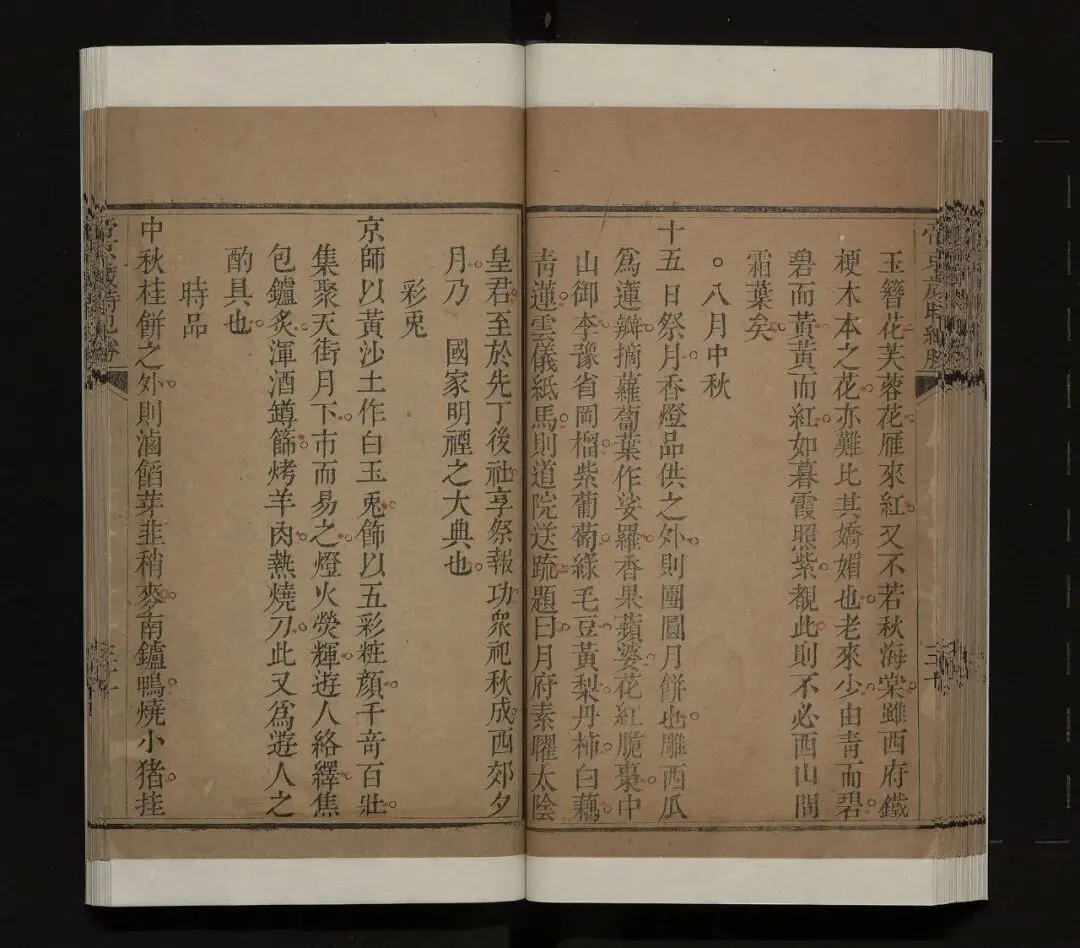 玉簪花芙蓉花雁來紅又不若秋海棠雖西府鐵
梗木本之花亦難比其嬌媚也老來少由青而碧
碧而黃黃而紅如暮霞照紫覩此則不必西山問
霜葉矣
八月中秋
十五日祭月香燈品供之外則團圓月餅也雕西瓜
爲蓮瓣摘蘿蔔葉作娑羅香果蘋婆花紅脆棗中
山御李豫省岡榴紫葡萄綠毛豆黃梨丹柿白藕
青蓮雲儀紙馬則道院送疏題曰月府素曜太陰
皇君至於先丁後社享祭報功衆祀秋成西郊夕
月乃 國家明禋之大典也
彩兎
京師以黃沙土作白玉兎飾以五彩粧顏千奇百壯
集聚天街月下市而易之燈火熒輝遊人絡繹焦
包鑪炙渾酒鐏篩烤羊肉熱燒刀此又爲遊人之
酌具也
時品
中秋桂餅之外則滷餡芽韭稍麥南鑪鴨燒小猪挂